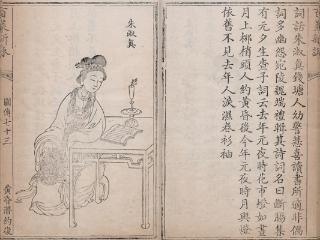 詞話朱淑真錢塘人幼警慧喜讀書所適非偶
詞多幽怨宛陵魏端禮輯其詩詞名曰斷腸集
有元夕生查子詞云去年元夜時花市燈如晝
月上柳梢頭人約黃昏後今年元夜時月與燈
依舊不見去年人淚濕春衫袖
朱淑真
圖傳七十三
黃昏潛約後